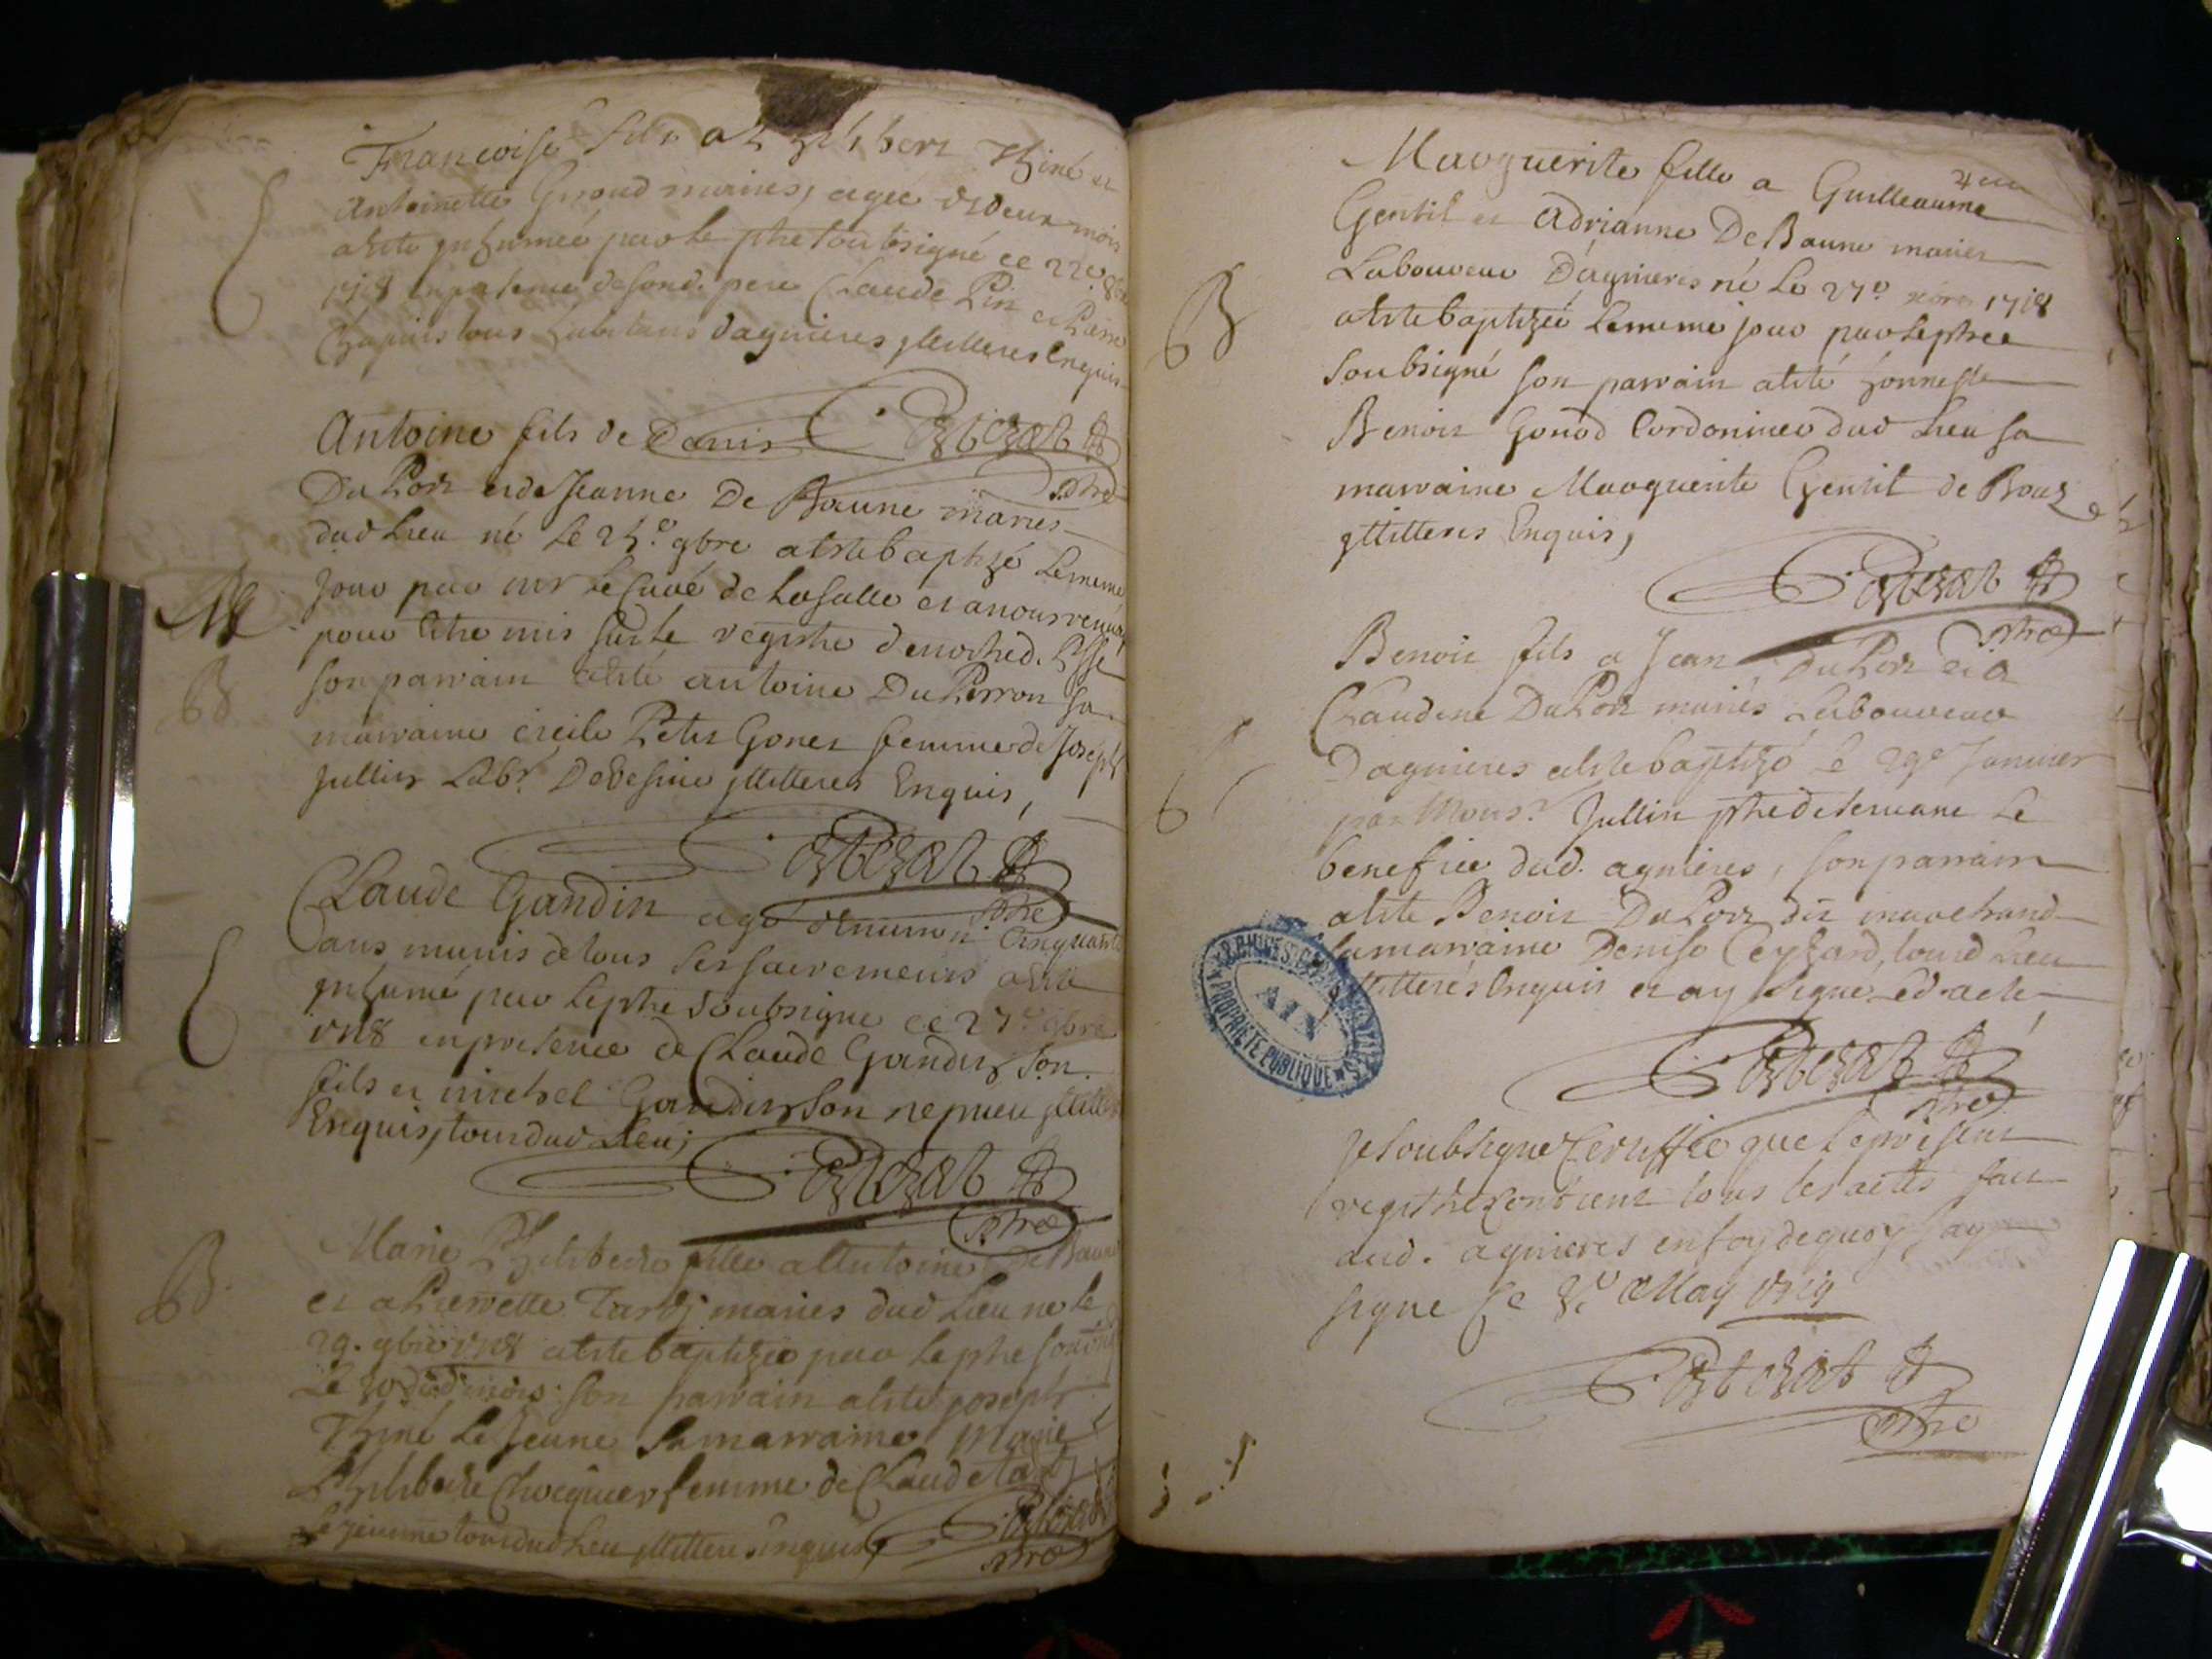 Francoise fille a Philibert Thiné et
Antoinette Gonod maries, agée de deux mois
a esté inhumée par le pbre soubsigné ce 22e 8bre
1718 en presence de sond. pere Claude Pin et Pierre
Chapuis tous habitans dagnieres illitteres Enquis
Antoine fils de Denis
DuPorz et de Jeanne De Baune maries
dud Lieu né le 25.e 9bre a este baptizé Le meme
Jour par mr le Curé de LaSalle et a nous renvoyé
pour Etre mis sur le registre de nostred. Esse
son parrain a esté antoine DuPerron sa
marraine cecile Petit Gonet femme de Joseph
Jullin Lab.r DeVesine illitteres Enquis,
ptre
Claude Gandin agé denviron Cinquante
ans munis de tous ses sacremens a esté
inhumé par le pbre soubsigne ce 27e 9bre
1718 en presence de Claude Gandin son
fils et michel Gandin son nepueu illitteres
Enquis, tous dud Lieu;
ptre
B
Marie Philiberte fille a Antoine De Baune
et a Pierrette Tardy maries dud Lieu ne le
29. 9bre 1718 a este baptizée par le pbre soubsig
Le 30 dud mois son parrain a esté joseph
Thiné Le Jeune Sa marraine Marie
Philiberte Chocquier femme de Claude Tardy
Le jeune tous dud Lieu illitteres Enquis,
ptre
4eme
Marguerite fille a Guilleaume
Gentil et Adrianne De Baune maries
Laboureur D'agnieres né Le 27e 1718
a este baptizée Le meme jour par le pbre
Soubsigné son parrain a esté honneste
Benoit Gonod Cordonnier dud Lieu sa
marraine Marguerite Gentil de Bouz
illitteres Enquis,
B
ptre
Benoit fils a Jean DuPorz et a
Claudine DuPorz mariés Laboureur
Dagnieres a este baptizé le 29e Janvier
par Mons.r Jullin pbre deservant Le
benefice dud. agnieres, son parrain
a este Benoit DuPorz dit marchand
sa marraine Denise Ceyzard, tous d Lieu
illitterés Enquis et ay signé led. acte
ptre
ARCHIVES DEPARTEMENTALES
AIN
PROPRIETE PUBLIQUE
Je soubsigné Certiffie que le present
registre Contient tous les actes fait
aud. agnieres en foy de quoy jay
signe Ce 8.e May 1719
ptre